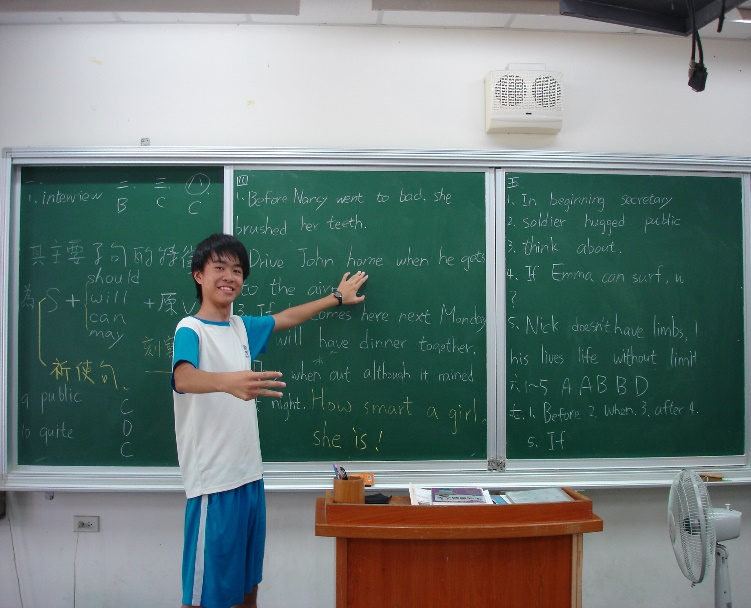 1. interview 二. 三. ①
B C C
其主要子句的特徵
should
為 S + will + 原V
can
may
祈使句.
9 public C
10 quite D
C
四
1. Before Nancy went to bad. she
brushed her teeth.
Drive John home when he gets
to the air
3. If comes here next Monday
will have dinner together.
when out although it rained
night. How smart a girl
she is!
五
1. In beginning secretary
2. soldier hugged public
3. think about.
4. If Emma can surf, u
?
5. Nick doesn't have limbs, I
his lives life without limit
六 1~5 A A B B D
七. 1. Before 2. when. 3. after 4.
5. If